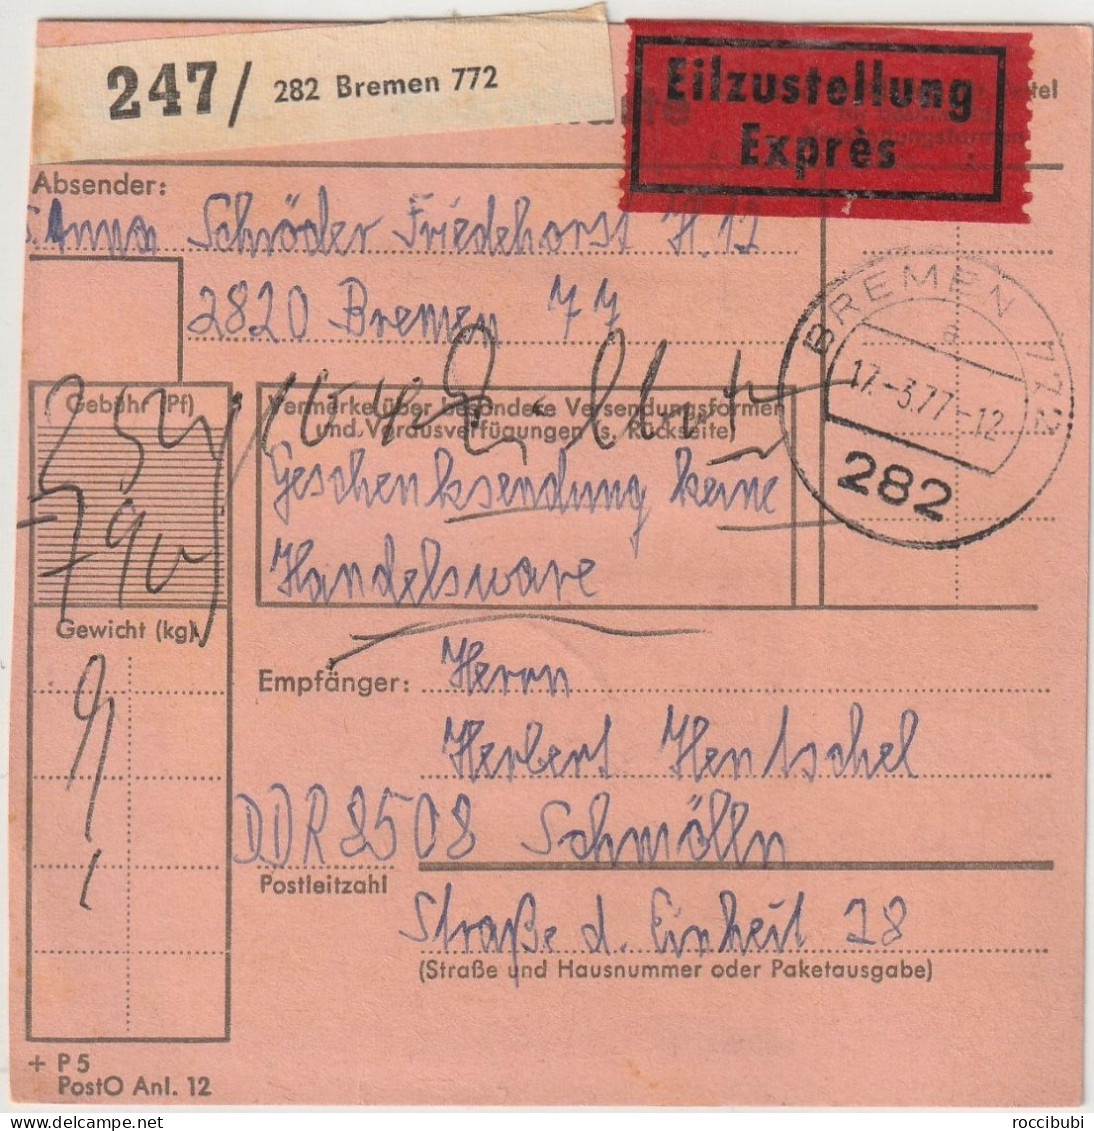 247/ 282 Bremen 772
Eilzustellung
Exprès
Absender:
Anna Schröder Friedehorst H.12
2820 Bremen 77
BREMEN 772
a
17.-3.77-12
282
Gebühr (Pf)
Vermerke über besondere Versendungsformen
und Vorausverfügungen (s. Rückseite)
Geschenksendung keine
Handelsware
Gewicht (kg)
Empfänger: Herrn
Herbert Hentschel
DDR 8508 Schmölln
Postleitzahl
Straße d. Einheit 28
(Straße und Hausnummer oder Paketausgabe)
+ P 5
PostO Anl. 12
roccibubi